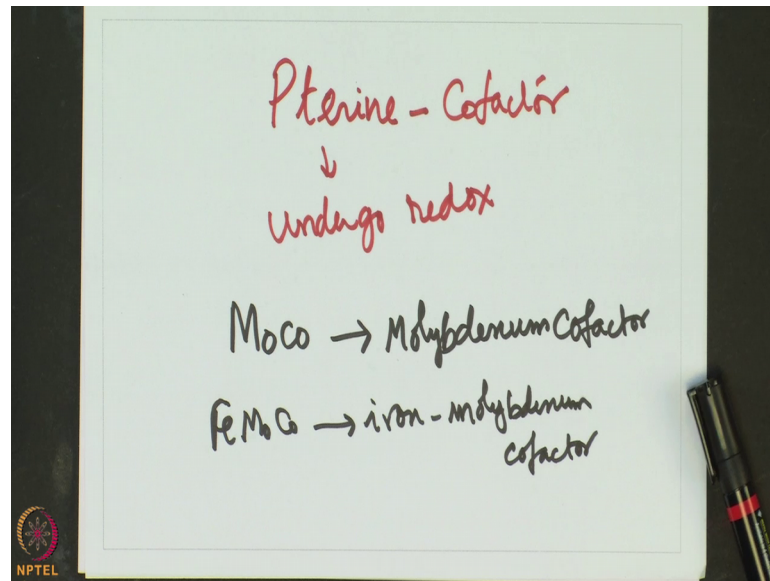 Pterine - Cofactor
↓
undergo redox
MoCo → Molybdenum Cofactor
FeMoCo → iron-molybdenum
cofactor
NPTEL